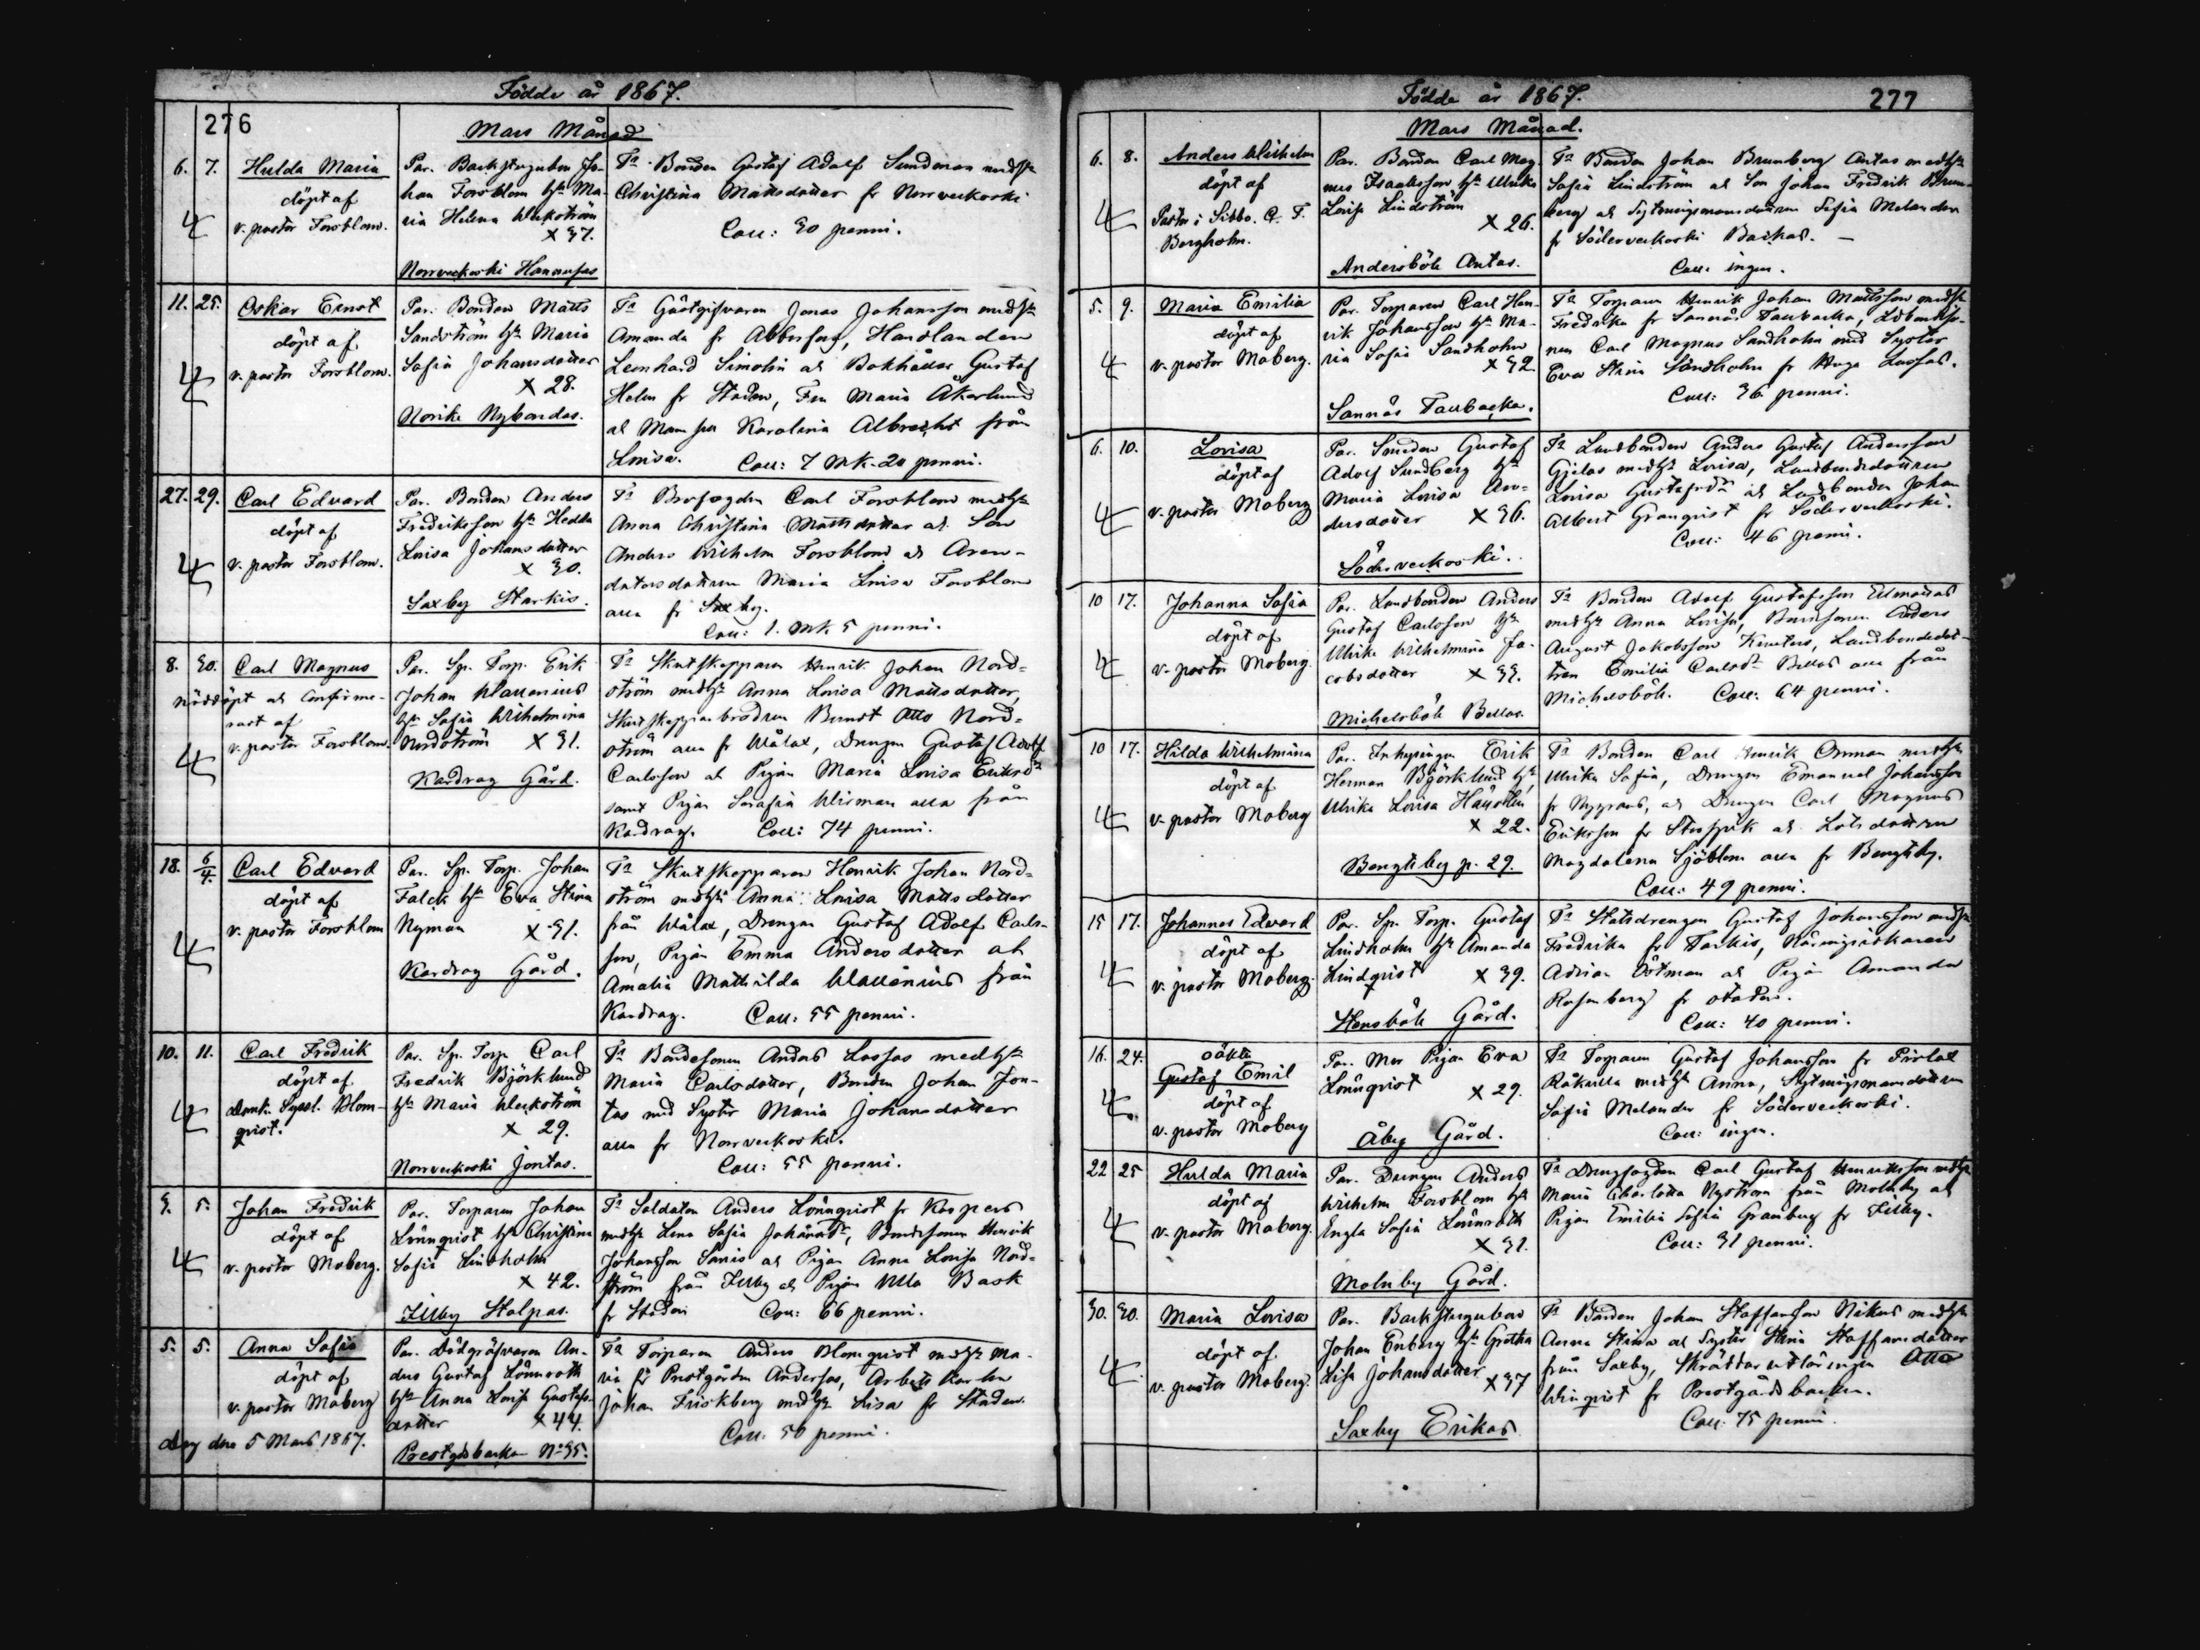 Födde år 1867.
276
Mars Månad
6. 7. Hulda Maria
döpt af
v. pastor Forsblom.
Par. Backstugubon Jo-
han Forsblom h. Ma-
ria Helena Weckström
X 37.
Norrveckoski Hannusas
Fa Bonden Gustaf Adolf Sundman med h.
Christina Mattsdotter fr Norrveckoski
Coll: 30 penni.
11. 25. Oskar Ernst
döpt af
v. pastor Forsblom.
Par. Bonden Matts
Sandström h. Maria
Sofia Johansdotter
X 28.
Norike Nybondas.
Fa Gästgifvaren Jonas Johansson med h.
Amanda fr Abborfors, Handlanden
Leonhard Simolin och Bokhållar Gustaf
Helin fr Staden, Fru Maria Åkerlund
och Mamsell Karolina Albrecht från
Lovisa. Coll: 7 Mk. 20 penni.
27. 29. Carl Edvard
döpt af
v. pastor Forsblom.
Par. Bonden Anders
Fredriksson h. Hedda
Lovisa Johansdotter
X 30.
Saxby Starkis.
Fa Brofogden Carl Forsblom med h.
Anna Christina Mattsdotter och Son
Anders Wilhelm Forsblom och Aren-
datorsdottren Maria Lovisa Forsblom
alla fr Saxby.
Coll: 1. Mk. 5 penni.
8. 30. Carl Magnus
nöddöpt och confirme-
radt af
v. pastor Forsblom.
Par. Sp. Torp. Erik
Johan Wallenius
h. Sofia Wilhelmina
Nordström X 31.
Kardrag Gård.
Fa Skutskepparen Henrik Johan Nord-
ström med h. Anna Lovisa Mattsdotter,
Skutskepparbrodren Berndt Otto Nord-
ström alla fr Wålax, Drengen Gustaf Adolf
Carlsson och Pigan Maria Lovisa Eriksd.
samt Pigan Serafia Wirman alla från
Kardrag. Coll: 74 penni.
18. 6/4. Carl Edvard
döpt af
v. pastor Forsblom
Par. Sp. Torp. Johan
Falck h. Eva Stina
Nyman X 31.
Kardrag Gård.
Fa Skutskepparen Henrik Johan Nord-
ström med h. Anna Lovisa Mattsdotter
från Wålax, Drengen Gustaf Adolf Carls-
son, Pigan Emma Andersdotter och
Amalia Mathilda Wallenius från
Kardrag. Coll: 55 penni.
10. 11. Carl Fredrik
döpt af
Domk. Syssl. Blom-
qvist.
Par. Sp. Torp. Carl
Fredrik Björklund
h. Maria Weckström
X 29.
Norrveckoski Jontas.
Fa Bondesonen Anders Lassas med h.
Maria Carlsdotter, Bonden Johan Jon-
tas med Syster Maria Johansdotter
alla fr Norrveckoski.
Coll: 55 penni.
3. 5. Johan Fredrik
döpt af
v. pastor Moberg.
Par. Torparen Johan
Lönnqvist h. Christina
Sofia Lindholm
X 42.
Illby Stolpas.
Fa Soldaten Anders Lönnqvist fr Kaspers
med h. Lena Sofia Johansd., Bondesonen Henrik
Johansson och Pigan Anna Lovisa Nord-
ström från Illby och Pigan Ulla Bask
fr Staden Coll: 66 penni.
5. 5. Anna Sofia
döpt af
v. pastor Moberg
den 5 Mars 1867.
Par. Dödgräfvaren An-
ders Gustaf Lönnroth
h. Anna Lovisa Gustafs-
dotter X 44.
Prestgdsbacken No 35.
Fa Torparen Anders Blomqvist med h. Ma-
ria fr Prestgården Andersas, Arbets Karlen
Johan Friskberg med h. Lisa fr Staden.
Coll: 50 penni.
Födde år 1867.
277
Mars Månad.
6. 8. Anders Wilhelm
döpt af
Pastor i Sibbo. C. F.
Bergholm.
Par. Bonden Carl Mag-
nus Isaaksson h. Ulrika
Lovisa Lindström
X 26.
Andersböle Antas.
Fa Bonden Johan Brunberg Antas med h.
Sofia Lindström och Son Johan Fredrik Brun-
berg och Sytningsmansdottren Sofia Melander
fr Söderveckoski Backas. —
Coll: ingen.
5. 9. Maria Emilia
döpt af
v. pastor Moberg.
Par. Torparen Carl Hen-
rik Johansson h. Ma-
ria Sofia Sandholm
X 32.
Sannäs Taubacka.
Fa Torparen Henrik Johan Mattsson med h.
Fredrika fr Sannäs Taubacka,
Carl Magnus Sandholm med Syster
Eva Stina Sandholm fr Lassas.
Coll: 36 penni.
6. 10. Lovisa
döpt af
v. pastor Moberg
Par. Smeden Gustaf
Adolf Sundberg h.
Maria Lovisa An-
dersdotter X 36.
Söderveckoski.
Fa Landbonden Anders Gustaf Andersson
Gjelas med h. Lovisa, Landbondedottren
Lovisa Gustafsd. och Landbonden Johan
Albert Granqvist fr Söderveckoski.
Coll: 46 penni.
10 17. Johanna Sofia
döpt af
v. pastor Moberg.
Par. Landbonden Anders
Gustaf Carlsson h.
Ulrika Wilhelmina Ja-
cobsdotter X 33.
Michelsböle Bellas.
Fa Bonden Adolf Gustafsson
med h. Anna Lovisa, Bondesonen Anders
August Jakobsson, Landbondedot-
tren Emilia Carlsd. Bellas alla från
Michelsböle. Coll: 64 penni.
10 17. Hilda Wilhelmina
döpt af
v. pastor Moberg
Par. Inhysingen Erik
Herman Björklund h.
Ulrika Lovisa Hällström
X 22.
Bengtsby p. 29.
Fa Bonden Carl Henrik Onman med h.
Ulrika Sofia, Drengen Emanuel Johansson
fr, och Drengen Carl Magnus
Eriksson fr och Lotsdottren
Magdalena Sjöblom alla fr Bengtsby.
Coll: 49 penni.
15 17. Johannes Edvard
döpt af
v. pastor Moberg.
Par. Sp. Torp. Gustaf
Lindholm h. Amanda
Lindqvist X 39.
Stensböle Gård.
Fa Statsdrengen Gustaf Johansson med h.
Fredrika fr Tarkis, Näringsidkaren
Adrian Östman och Pigan Amanda
Rosenberg fr staden.
Coll: 40 penni.
16. 24. oäkta
Gustaf Emil
döpt af
v. pastor Moberg
Par. Mor Pigan Eva
Lönnqvist X 29.
Åby Gård.
Fa Torparen Gustaf Johansson fr Pirlax
Råkulla med h. Anna, Sytningsmansdottren
Sofia Melander fr Söderveckoski.
Coll: ingen.
22 25 Hulda Maria
döpt af
v. pastor Moberg.
Par. Drengen Anders
Wilhelm Forsblom h.
Engla Sofia Lönnroth
X 31.
Molnby Gård.
Fa Drengfogden Carl Gustaf Henriksson med h.
Maria Charlotta Nyström från Molnby och
Pigan Emilia Sofia Granberg fr Illby.
Coll: 31 penni.
30. 30. Maria Lovisa
döpt af
v. pastor Moberg.
Par. Backstugubon
Johan Enberg h. Gretha
Lisa Johansdotter X 37
Saxby Erikas
Fa Bonden Johan Staffansson Nikus med h.
Anna Stina och Syster Stina Staffansdotter
från Saxby, Skräddarutläringen Otto
Winqvist fr Prestgårdsbacken.
Coll: 75 penni.